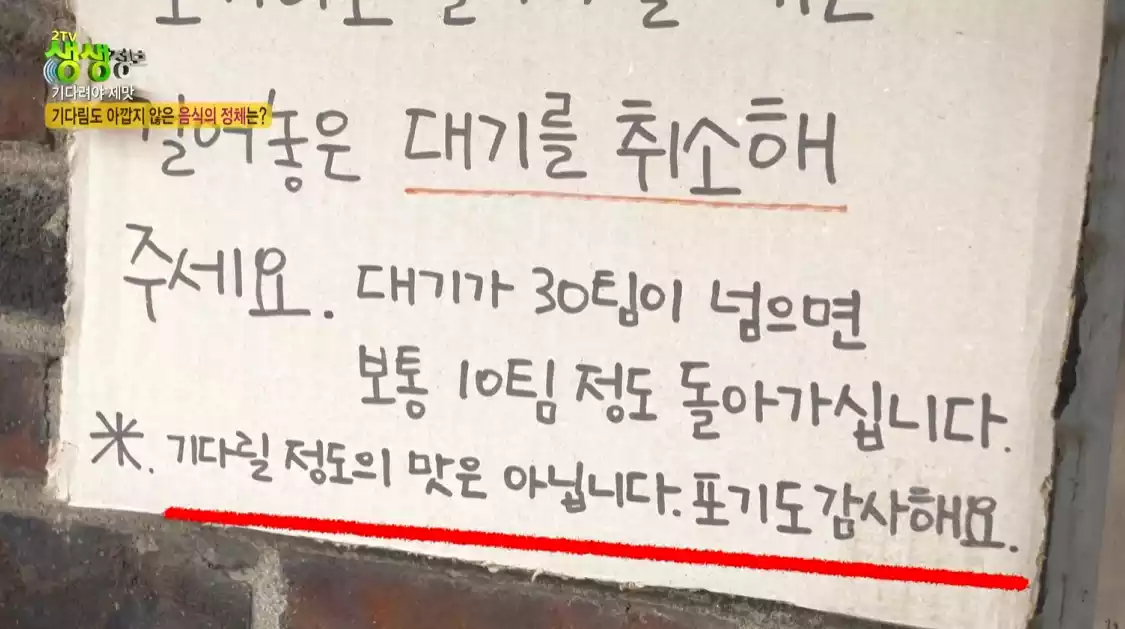 2TV
생생정보
기다려야 제맛
기다림도 아깝지 않은 음식의 정체는?
대기를 취소해
주세요. 대기가 30팀이 넘으면
보통 10팀 정도 돌아가십니다.
※. 기다릴 정도의 맛은 아닙니다. 포기도 감사해요.